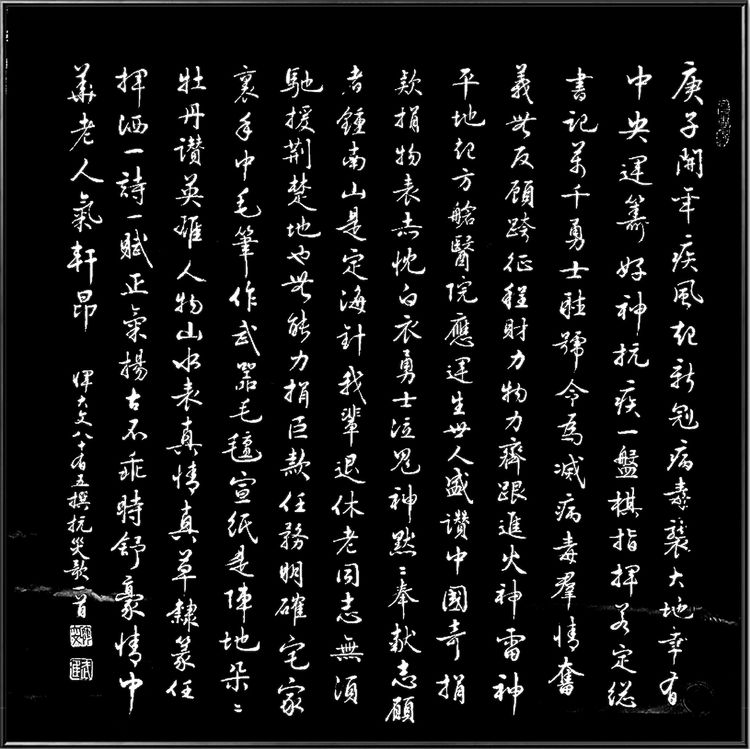 庚子開年疾風起新冠病毒襲大地幸有
中央運籌好神抗疾一盤棋指揮若定總
書記萬千勇士聽號令為滅病毒羣情奮
義無反顧跨征程財力物力齊跟進火神雷神
平地起方艙醫院應運生世人盛讚中國奇捐
款捐物表忠忱白衣勇士泣鬼神默〻奉獻志願
者鍾南山是定海針我輩退休老同志無須
馳援荊楚地也無能力捐巨款任務明確宅家
裏手中毛筆作武器毛氊宣紙是陣地朵〻
牡丹讚英雄人物山水表真情真草隸篆任
揮洒一詩一賦正氣揚古不乖時舒豪情中
華老人氣軒昂
八十有五撰抗災歌一首